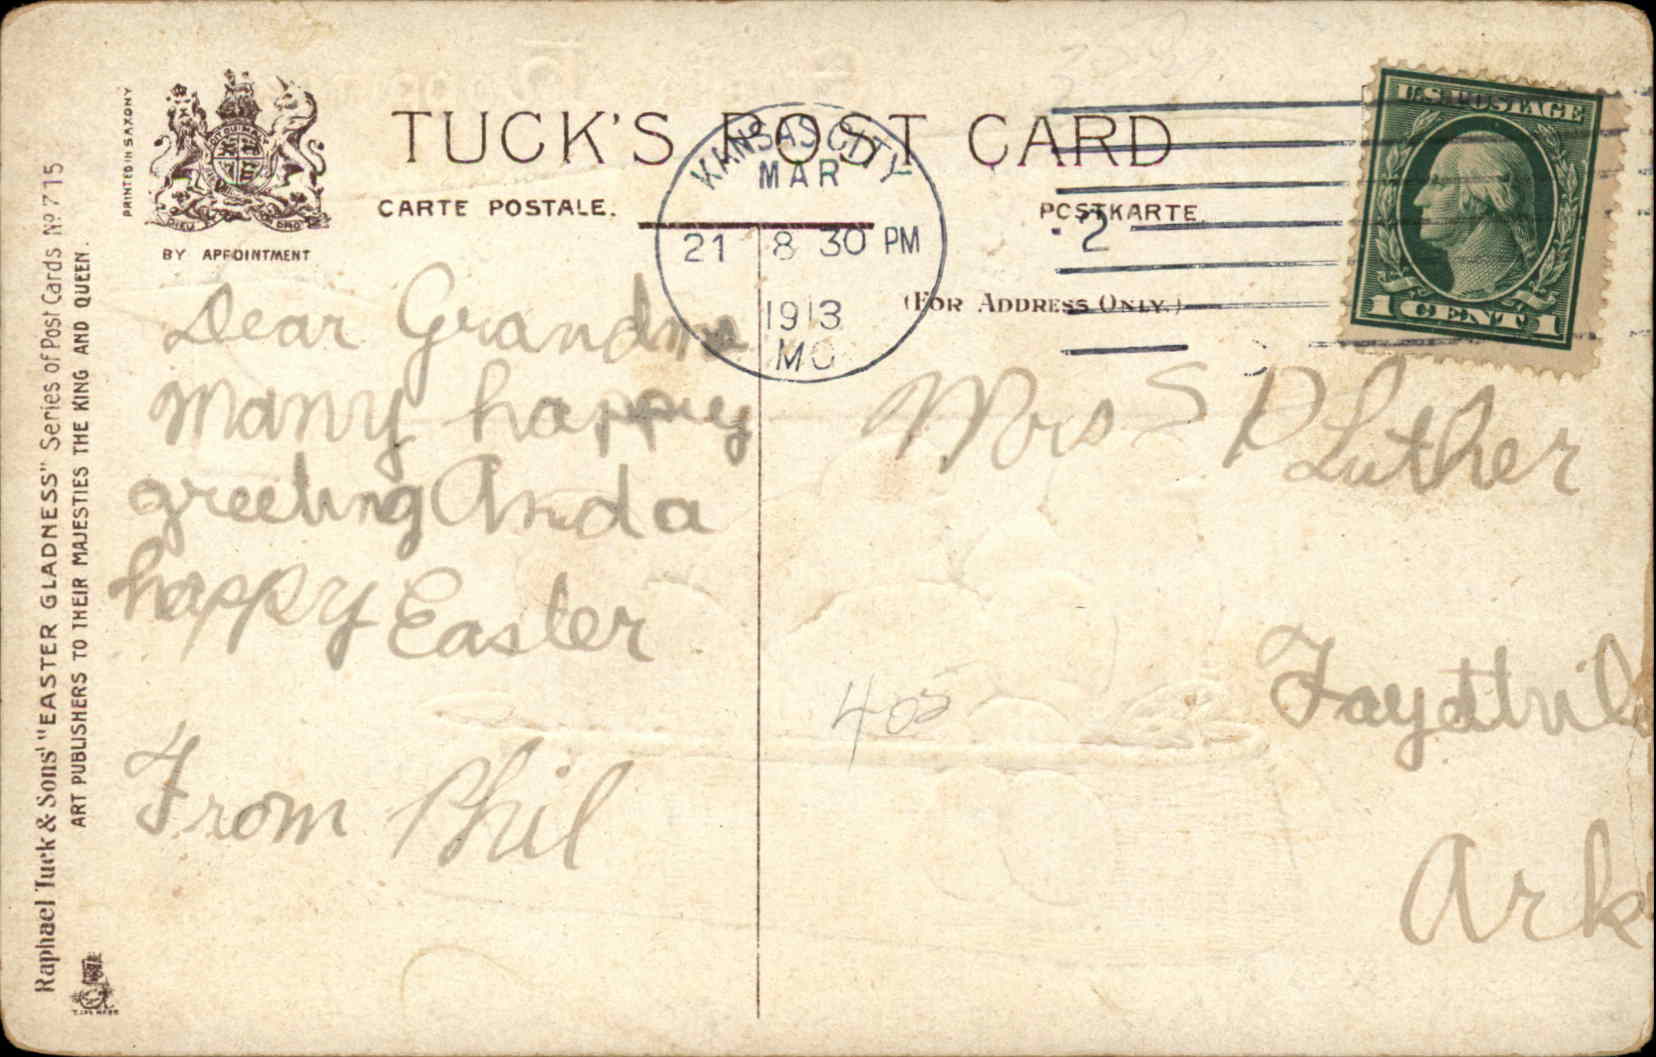 TUCK'S POST CARD
CARTE POSTALE.
POSTKARTE.
(FOR ADDRESS ONLY.)
PRINTED IN SAXONY
BY APPOINTMENT
KANSAS CITY
MAR
21 8 30 PM
1913
MO
2
U.S. POSTAGE
1 CENT 1
Dear Grandma
Many happy
greeting And a
happy Easter
From Phil
Mrs S P Luther
405
Ark
Raphael Tuck & Sons' "EASTER GLADNESS" Series of Post Cards No 715
ART PUBLISHERS TO THEIR MAJESTIES THE KING AND QUEEN.